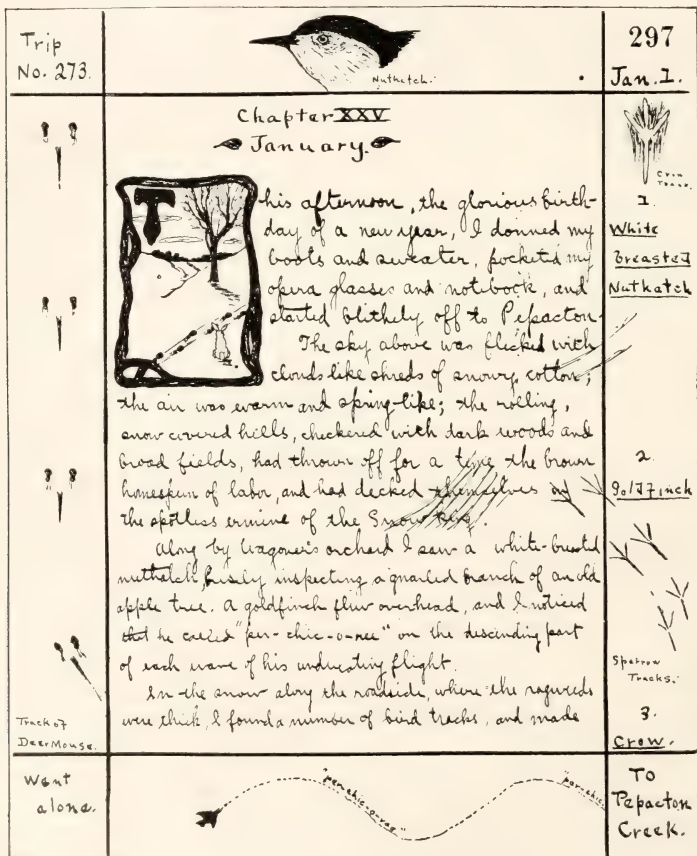 Trip
No. 273.
Nuthatch.
297
Jan. 1.
Chapter XXV
January.
This afternoon, the glorious birth-
day of a new year, I donned my
boots and sweater, pocketed my
opera glasses and notebook, and
started blithely off to Pepacton
The sky above was flecked with
clouds like shreds of snowy cotton;
the air was warm and spring-like; the rolling,
snow covered hills, checkered with dark woods and
broad fields, had thrown off for a time the brown
homespun of labor, and had decked themselves in
the spotless ermine of the Snow
Along by Wagoner's orchard I saw a white-breasted
nuthatch, busily inspecting a gnarled branch of an old
apple tree. A goldfinch flew overhead, and I noticed
that he called "per-chic-o-ree" on the descending part
of each wave of his undulating flight.
In the snow along the roadside, where the ragweeds
were thick, I found a number of bird tracks, and made
Crow
Track.
1.
White
Breasted
Nuthatch
2.
Goldfinch
Sparrow
Tracks.
3.
Crow.
Track of
Deer Mouse.
Went
alone.
"per-chic-o-ree"
"per-chic-
To
Pepacton
Creek.